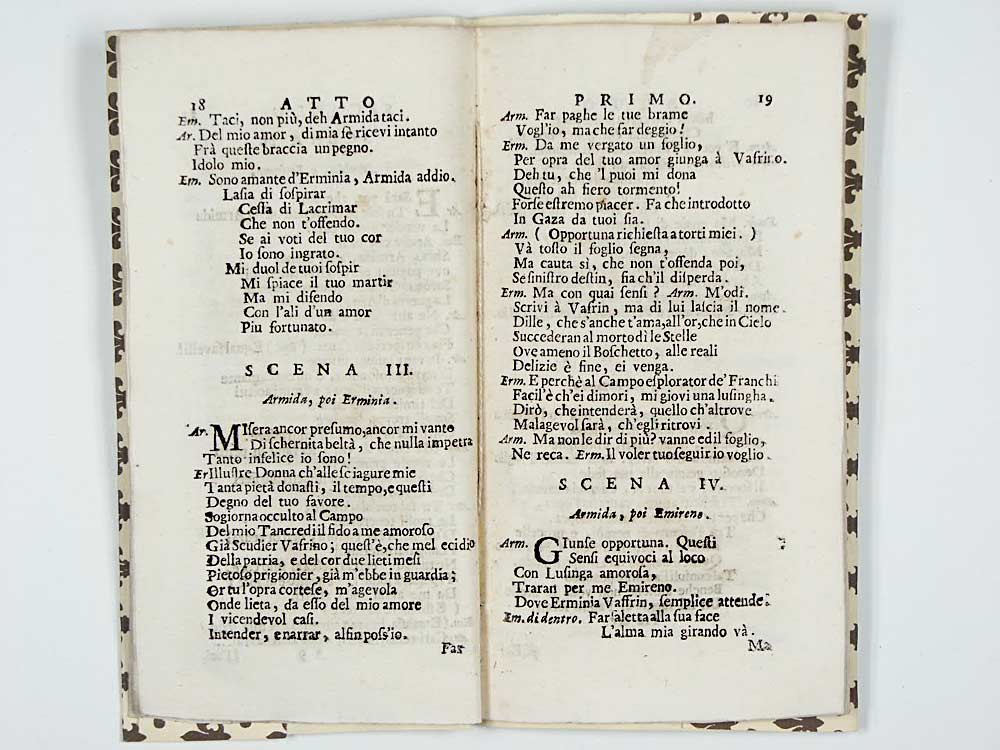 18 ATTO
Em. Taci, non più, deh Armida taci.
Ar. Del mio amor, di mia fè ricevi intanto
Frà queſte braccia un pegno.
Idolo mio.
Em. Sono amante d'Erminia, Armida addio.
Laſia di ſoſpirar
Ceſſa di Lacrimar
Che non t'offendo.
Se ai voti del tuo cor
Io sono ingrato.
Mi duol de tuoi ſoſpir
Mi ſpiace il tuo martir
Ma mi difendo
Con l'ali d'un amor
Piu fortunato.
SCENA III.
Armida, poi Erminia.
Ar. MIſera ancor preſumo, ancor mi vanto
Di ſchernita beltà, che nulla impetra
Tanto infelice io ſono!
Er Illuſtre Donna ch'alle ſciagure mie
Tanta pietà donaſti, il tempo, e queſti
Degno del tuo favore.
Sogiorna occulto al Campo
Del mio Tancredi il fido a me amoroſo
Già Scudier Vafrino; queſt'è, che mel ecidio
Della patria, e del cor due lieti meſi
Pietoſo prigionier, già m'ebbe in guardia;
Or tu l'opra corteſe, m'agevola
Onde lieta, da eſſo del mio amore
I vicendevol caſi.
Intender, e narrar, alfin poſs'io.
Far
PRIMO. 19
Arm. Far paghe le tue brame
Vogl'io, ma che far deggio!
Erm. Da me vergato un foglio,
Per opra del tuo amor giunga à Vafrino.
Deh tu, che 'l puoi mi dona
Queſto ah fiero tormento!
Forſe eſtremo piacer. Fa che introdotto
In Gaza da tuoi ſia.
Arm. ( Opportuna richieſta a torti miei. )
Và toſto il foglio ſegna,
Ma cauta si, che non t'offenda poi,
Se ſiniſtro deſtin, fia ch'il diſperda.
Erm. Ma con quai ſenſi ? Arm. M'odi.
Scrivi à Vafrin, ma di lui laſcia il nome.
Dille, che s'anche t'ama, all'or, che in Cielo
Succederan al morto dì le Stelle
Ove ameno il Boſchetto, alle reali
Delizie è fine, ei venga.
Erm. E perchè al Campo eſplorator de' Franchi
Facil'è ch'ei dimori, mi giovi una luſingha.
Dirò, che intenderà, quello ch'altrove
Malagevol ſarà, ch'egli ritrovi.
Arm. Ma non le dir di più? vanne ed il foglio,
Ne reca. Erm. Il voler tuo ſeguir io voglio.
SCENA IV.
Armida, poi Emireno.
Arm. GIunſe opportuna. Queſti
Senſi equivoci al loco
Con Luſinga amoroſa,
Traran per me Emireno.
Dove Erminia Vaffrin, ſemplice attende.
Em. di dentro. Farfaletta alla ſua face
L'alma mia girando và.
Ma